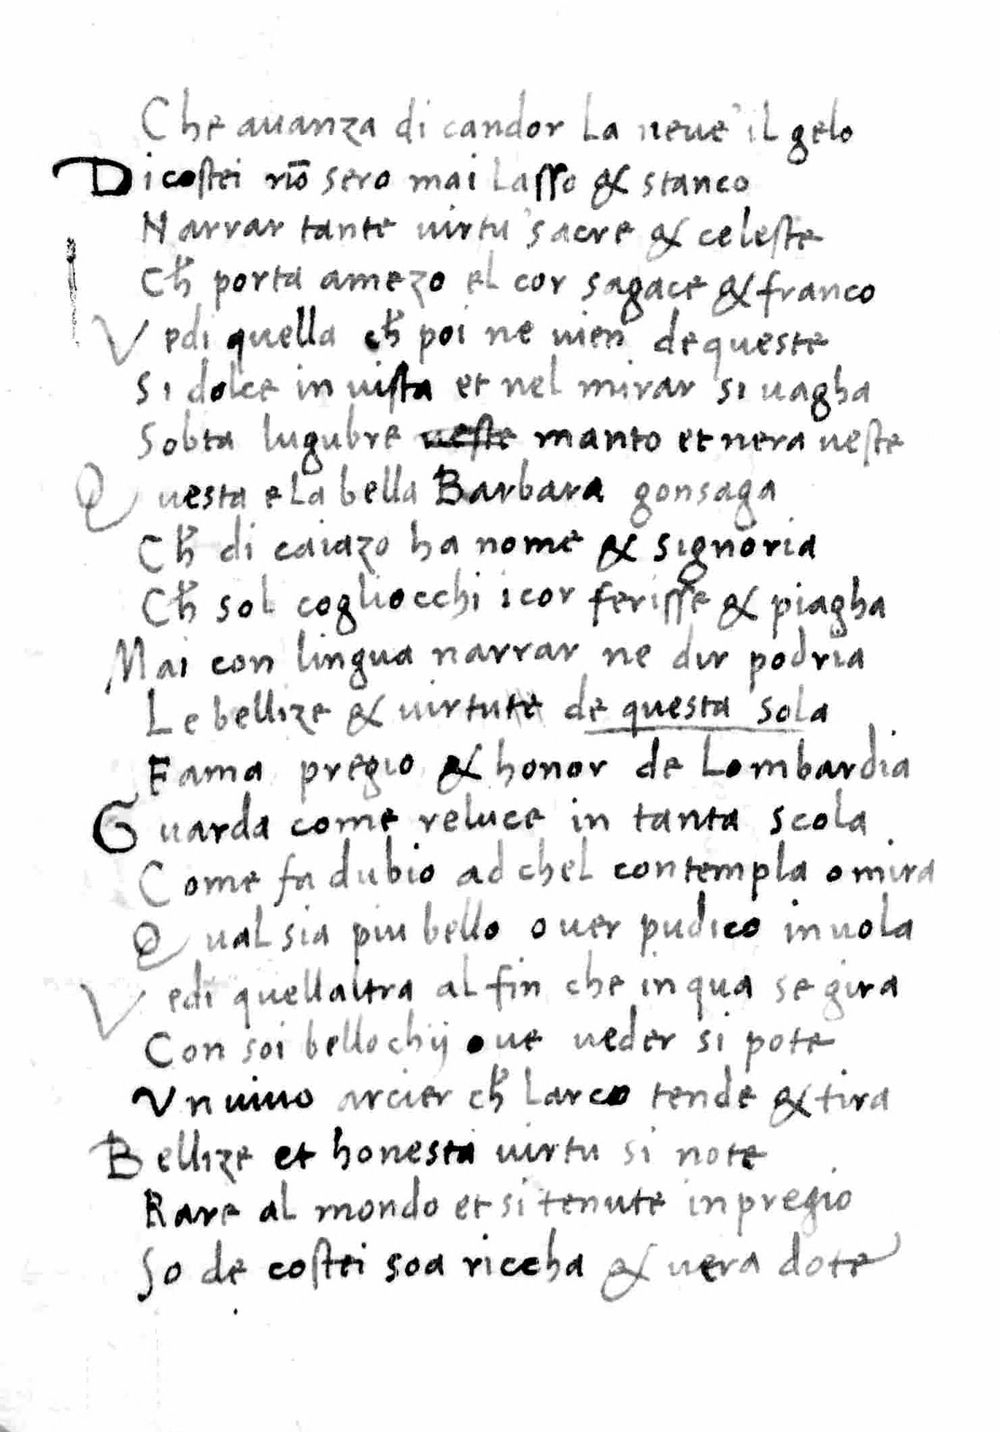 Che auanza di candor la neue il gelo
Di costei nō sero mai lasso & stanco
Narrar tante uirtu sacre & celeste
Ch̄ porta amezo el cor sagace & franco
Vedi quella ch̄ poi ne uien de queste
Si dolce in uista et nel mirar si uagha
Sobta lugubre ueste manto et nera ueste
Questa e la bella Barbara gonsaga
Ch̄ di caiazo ha nome & signoria
Ch̄ sol cogliocchi i cor ferisse & piagha
Mai con lingua narrar ne dir podria
Le bellize & uirtute de questa sola
Fama pregio & honor de Lombardia
Guarda come reluce in tanta scola
Come fa dubio ad chel contempla o mira
Qual sia piu bello o uer pudico in uola
Vedi quellaltra al fin che in qua se gira
Con soi bellochij oue ueder si pote
Vn uiuo arcier ch̄ larco tende & tira
Bellize et honesta uirtu si note
Rare al mondo et si tenute in pregio
So de costei soa riccha & uera dote